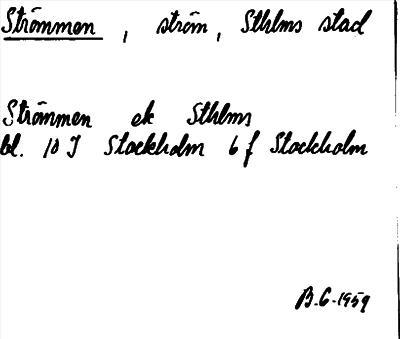 Strömmen, ström, Sthlms stad
Strömmen ek Sthlms
bl. 10 I Stockholm 6 f Stockholm
B.G. 1959